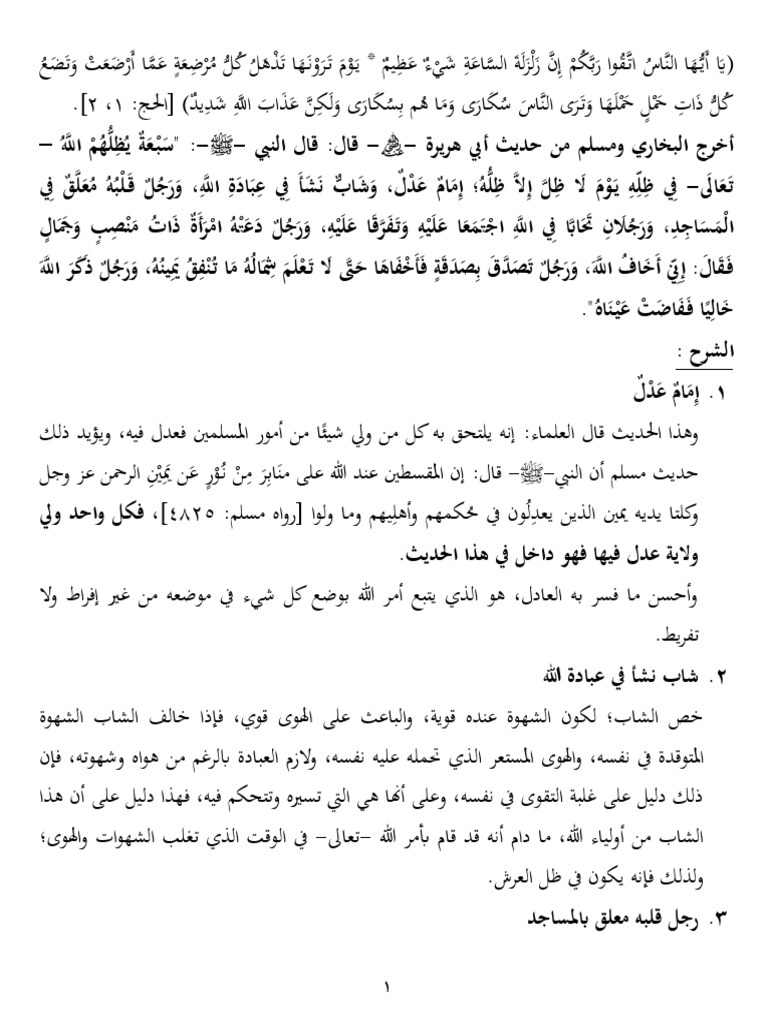 (يَا أَيُّهَا النَّاسُ اتَّقُوا رَبَّكُمْ إِنَّ زَلْزَلَةَ السَّاعَةِ شَيْءٌ عَظِيمٌ * يَوْمَ تَرَوْنَهَا تَذْهَلُ كُلُّ مُرْضِعَةٍ عَمَّا أَرْضَعَتْ وَتَضَعُ
كُلُّ ذَاتِ حَمْلٍ حَمْلَهَا وَتَرَى النَّاسَ سُكَارَى وَمَا هُم بِسُكَارَى وَلَكِنَّ عَذَابَ اللَّهِ شَدِيدٌ) [الحج: ١، ٢].
أخرج البخاري ومسلم من حديث أبي هريرة -رضي الله عنه- قال: قال النبي -ﷺ-: "سَبْعَةٌ يُظِلُّهُمْ اللَّهُ –
تَعَالَى– فِي ظِلِّهِ يَوْمَ لَا ظِلَّ إِلاَّ ظِلُّهُ؛ إِمَامٌ عَدْلٌ، وَشَابٌّ نَشَأَ فِي عِبَادَةِ اللَّهِ، وَرَجُلٌ قَلْبُهُ مُعَلَّقٌ فِي
الْمَسَاجِدِ، وَرَجُلَانِ تَحَابَّا فِي اللَّهِ اجْتَمَعَا عَلَيْهِ وَتَفَرَّقَا عَلَيْهِ، وَرَجُلٌ دَعَتْهُ امْرَأَةٌ ذَاتُ مَنْصِبٍ وَجَمَالٍ
فَقَالَ: إِنِّي أَخَافُ اللَّهَ، وَرَجُلٌ تَصَدَّقَ بِصَدَقَةٍ فَأَخْفَاهَا حَتَّى لَا تَعْلَمَ شِمَالُهُ مَا تُنْفِقُ يَمِينُهُ، وَرَجُلٌ ذَكَرَ اللَّهَ
خَالِيًا فَفَاضَتْ عَيْنَاهُ".
الشرح :
١. إِمَامٌ عَدْلٌ
وهذا الحديث قال العلماء: إنه يلتحق به كل من ولي شيئًا من أمور المسلمين فعدل فيه، ويؤيد ذلك
حديث مسلم أن النبي–ﷺ– قال: إن المقسطين عند الله على منَابِرَ مِنْ نُوْرٍ عَن يَمِيْنِ الرحمن عز وجل
وكلتا يديه يمين الذين يعدِلُون في حُكمهم وأهلِيهم وما ولوا [رواه مسلم: ٤٨٢٥]، فكل واحد ولي
ولاية عدل فيها فهو داخل في هذا الحديث.
وأحسن ما فسر به العادل، هو الذي يتبع أمر الله بوضع كل شيء في موضعه من غير إفراط ولا
تفريط.
٢. شاب نشأ في عبادة الله
خص الشاب؛ لكون الشهوة عنده قوية، والباعث على الهوى قوي، فإذا خالف الشاب الشهوة
المتوقدة في نفسه، والهوى المستعر الذي تحمله عليه نفسه، ولازم العبادة بالرغم من هواه وشهوته، فإن
ذلك دليل على غلبة التقوى في نفسه، وعلى أنها هي التي تسيره وتتحكم فيه، فهذا دليل على أن هذا
الشاب من أولياء الله، ما دام أنه قد قام بأمر الله –تعالى– في الوقت الذي تغلب الشهوات والهوى؛
ولذلك فإنه يكون في ظل العرش.
٣. رجل قلبه معلق بالمساجد
١